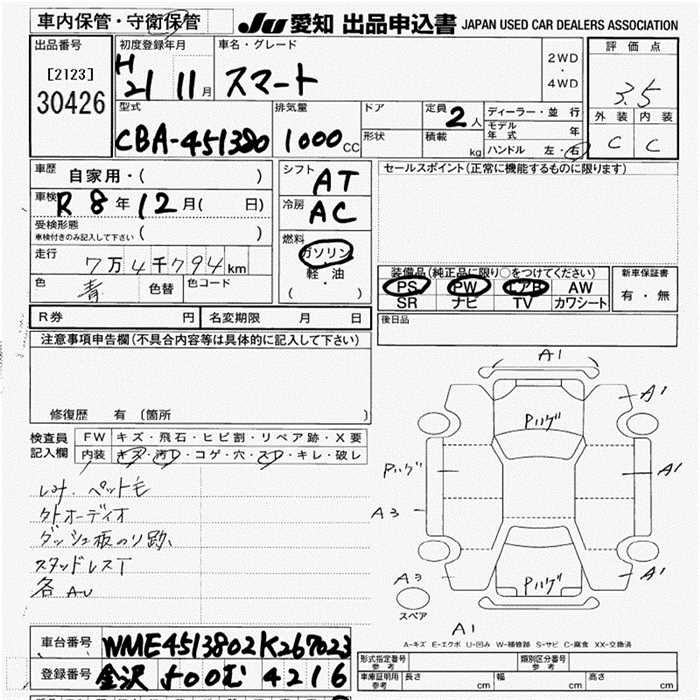 車内保管・守衛保管
JU 愛知 出品申込書 JAPAN USED CAR DEALERS ASSOCIATION
出品番号
[2123]
30426
初度登録年月
H 21 11月
車名・グレード
スマート
2WD
・
4WD
評価点
3.5
外装 内装
C C
型式
CBA-451380
排気量
1000cc
ドア
形状
定員 2人
積載 kg
ディーラー・並行
モデル年式 年
ハンドル 左・右
車歴
自家用・( )
車検 R8年12月( 日)
受検形態
車検付きのみ記入して下さい ( )
走行 7万4千794km
色 青 色替 色コード
シフト AT
冷房 AC
燃料
ガソリン
・
軽油
( )
セールスポイント(正常に機能するものに限ります)
装備品(純正品に限り○をつけてください)
PS PW エアB AW
SR ナビ TV カワシート
新車保証書
有・無
後日品
R券 円 名変期限 月 日
注意事項申告欄(不具合内容等は具体的に記入して下さい)
修復歴 有〔箇所 〕
検査員記入欄
FW キズ・飛石・ヒビ割・リペア跡・X要
内装 キズ・汚D・コゲ・穴・スD・キレ・破レ
ペット毛
ダッシュ板のり跡、
スタッドレスT
各AU
A1
A1
Pハゲ
Pハゲ
A1
A3
A3
Pハゲ
A1
スペア
A1
A-キズ E-エクボ U-凹み W-補修跡 S-サビ C-腐食 XX-交換済
車台番号 WME4513802K267023
登録番号 金沢 500む 4216
型式指定番号 参考
類別区分番号 参考
車庫証明用 参考 長さ cm 幅 cm 高さ cm